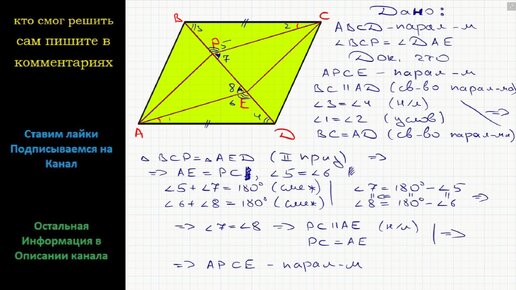 кто смог решить
сам пишите в
комментариях
Ставим лайки
Подписываемся на
Канал
Остальная
Информация в
Описании канала
B
C
3
2
P
5
7
8
6
E
A
1
4
D
Дано:
ABCD - парал-м
∠BCP = ∠DAE
Док. что
APCE - парал-м
BC ∥ AD (св-во парал-ма)
∠3 = ∠4 (н/л)
∠1 = ∠2 (услов)
BC = AD (св-во парал-ма)
⇒
△BCP = △AED (II приз) ⇒
⇒ AE = PC, ∠5 = ∠6
∠5 + ∠7 = 180° (смеж)
∠6 + ∠8 = 180° (смеж)
∠7 = 180° - ∠5
∠8 = 180° - ∠6
⇒
⇒ ∠7 = ∠8 ⇒ PC ∥ AE (н/л)
PC = AE
⇒
⇒ APCE - парал-м